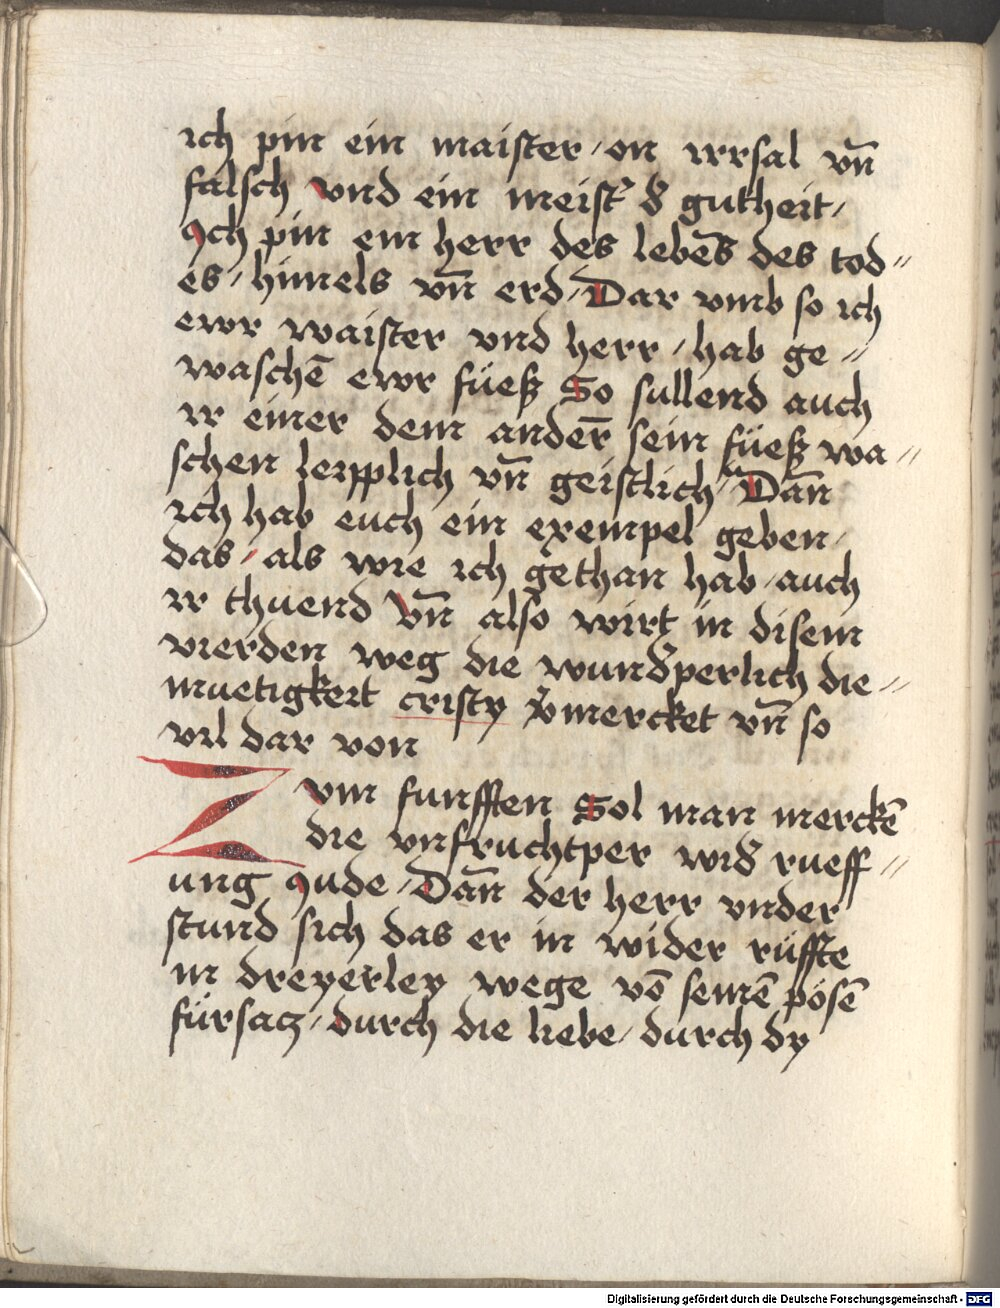 ich pin ein maister / on irrsal vn̄
falsch vnd ein meist' d' gutheit /
Ich pin ein herr des lebēs des tod //
es / himels vn̄ erd / Dar vmb so ich
ewr maister vnd herr / hab ge //
waschē ewr füeß So sullend auch
ir einer dem anderr̄ sein füeß wa //
schen leypplich vn̄ geistlich / Dan̄
ich hab euch ein exempel geben /
das / als wie ich gethan hab / auch
ir thuend Vn̄ also wirt in disem
vierden weg die wund'perlich die //
muetigkeit cristy v'mercket vn̄ so
vil dar von
Zvm funfften Sol man merckē
die vnfruchtper wid' rueff //
ung Iude / Dan̄ der herr vnder
stund sich das er in wider rüffte
in dreyerley wege vō seinē pösē
fürsacz / durch die liebe / durch dy
Digitalisierung gefördert durch die Deutsche Forschungsgemeinschaft - DFG